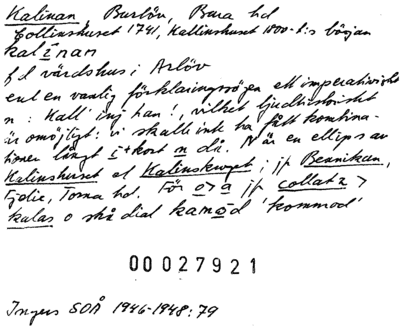 Kalinan, Burlöv, Bara hd
Collinshuset 1741, Kallinshuset 1800-t:s början
kalinan
f d värdshus i Arlöv
enl en vanlig förklaringssägen ett imperativiskt
n: Kall' inj han!, vilket ljudhistoriskt
är omöjligt: vi skulle inte ha fått kombina-
tionen långt i + kort n då. N är en ellips av
Kalinshuset el Kalinskroget; jf Bennikan,
Fjelie, Torna hd. För o > a jf collatz >
kalas o skå dial kamod 'kommod'
00027921
Ingers SOÅ 1946-1948:79